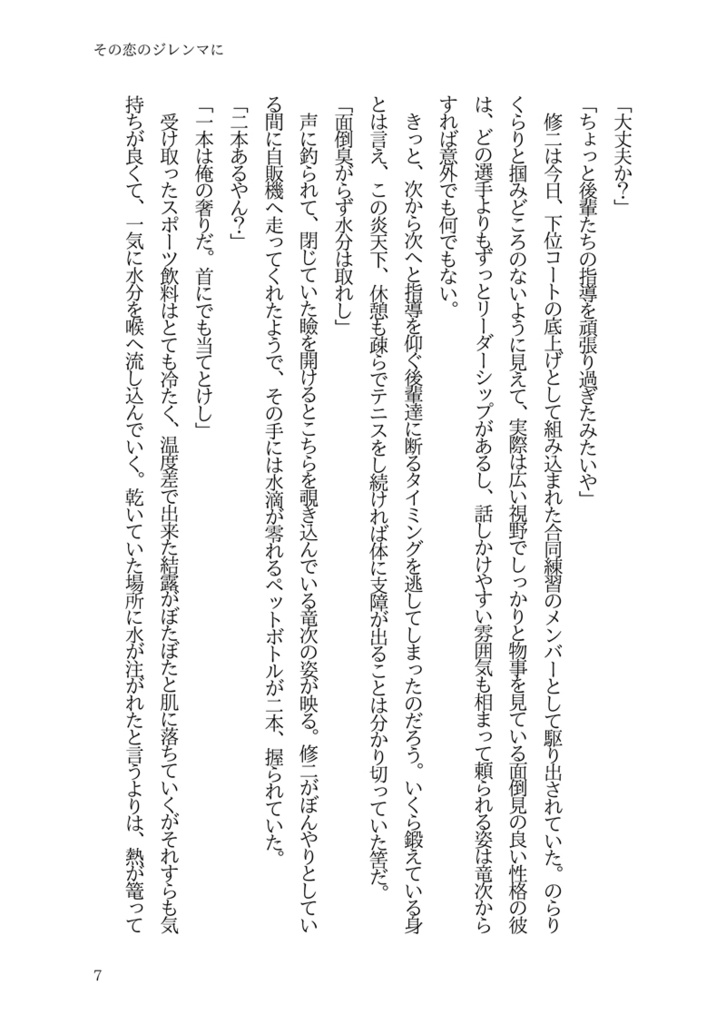 その恋のジレンマに
「大丈夫か？」
「ちょっと後輩たちの指導を頑張り過ぎたみたいや」
　修二は今日、下位コートの底上げとして組み込まれた合同練習のメンバーとして駆り出されていた。のらり
くらりと掴みどころのないように見えて、実際は広い視野でしっかりと物事を見ている面倒見の良い性格の彼
は、どの選手よりもずっとリーダーシップがあるし、話しかけやすい雰囲気も相まって頼られる姿は竜次から
すれば意外でも何でもない。
　きっと、次から次へと指導を仰ぐ後輩達に断るタイミングを逃してしまったのだろう。いくら鍛えている身
とは言え、この炎天下、休憩も疎らでテニスをし続ければ体に支障が出ることは分かり切っていた筈だ。
「面倒臭がらず水分は取れし」
　声に釣られて、閉じていた瞼を開けるとこちらを覗き込んでいる竜次の姿が映る。修二がぼんやりとしてい
る間に自販機へ走ってくれたようで、その手には水滴が零れるペットボトルが二本、握られていた。
「二本あるやん？」
「一本は俺の奢りだ。首にでも当てとけし」
　受け取ったスポーツ飲料はとても冷たく、温度差で出来た結露がぼたぼたと肌に落ちていくがそれすらも気
持ちが良くて、一気に水分を喉へ流し込んでいく。乾いていた場所に水が注がれたと言うよりは、熱が篭って
7